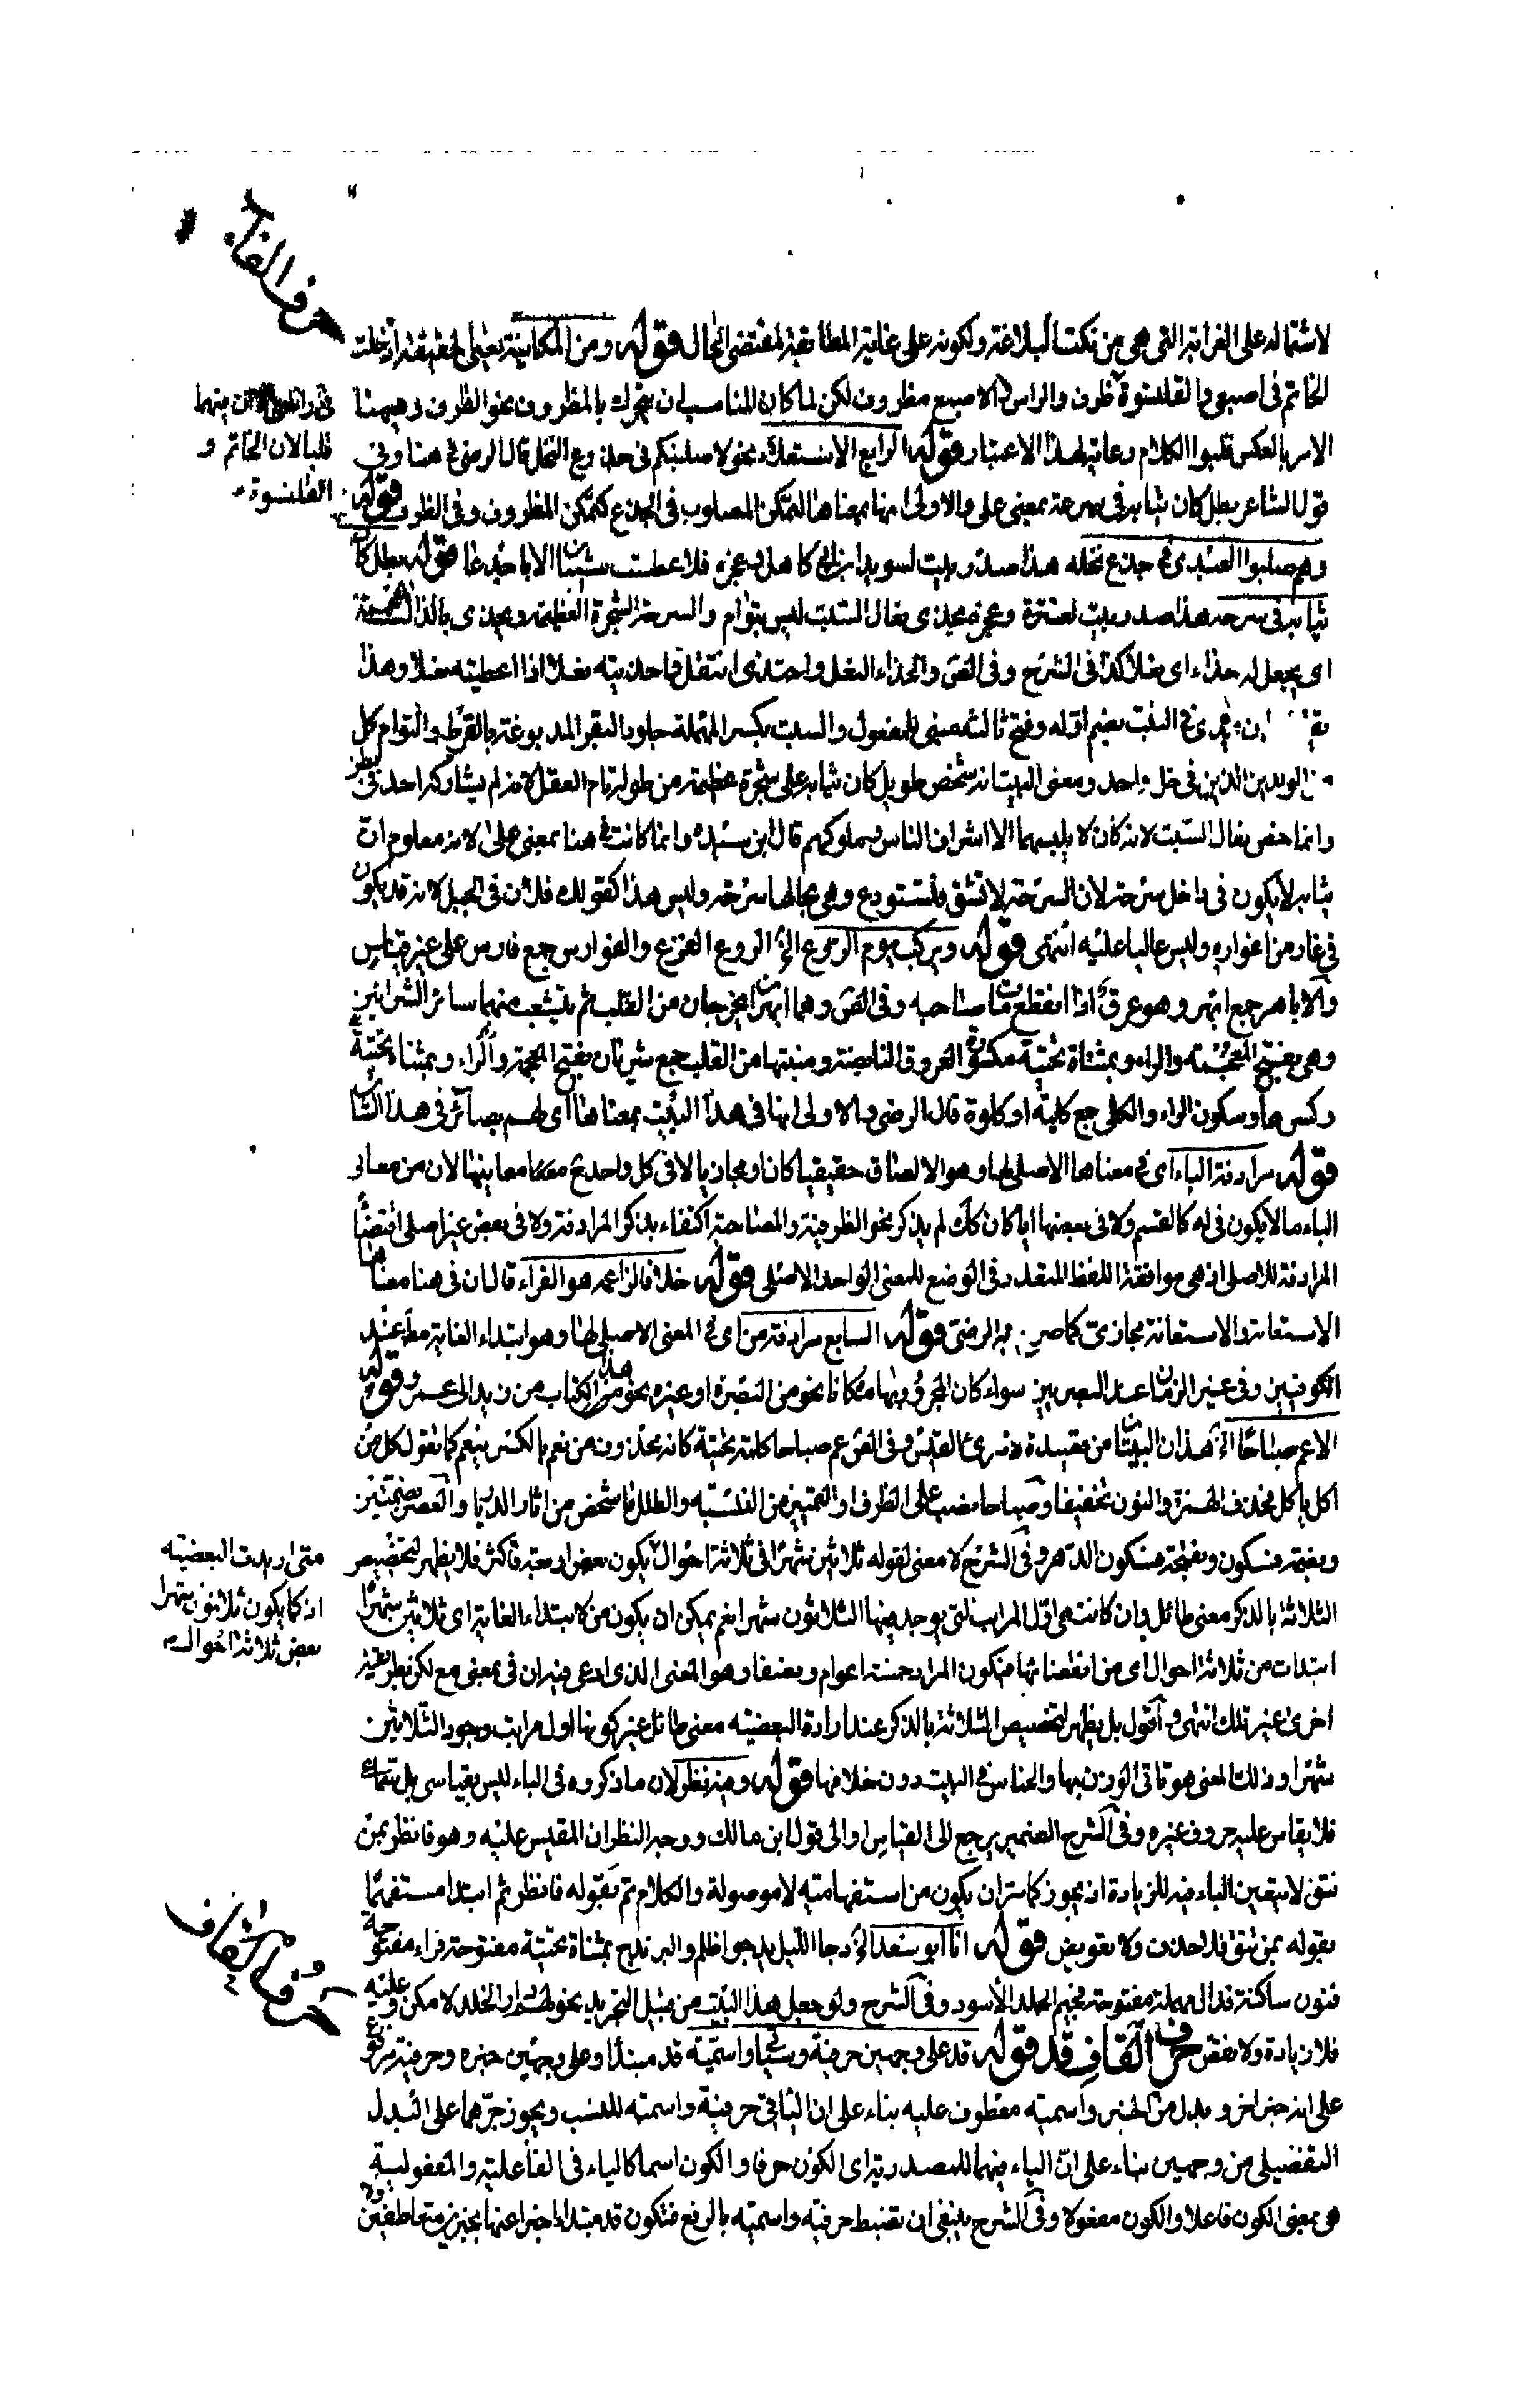 حرف الفاء
لاشتماله على القرابة التى هى من نكتب البلاغة ولكونه على غاية المطابقة لمقتضى الحال قوله ومن المكانية الحقيقة ادخلت
الخاتم فى اصبعى والقلنسوة ظرف والراس والاصبع مظروف لكن لما كان المناسب ان يتحرك بالمظروف نحو الظرف وههنا
الامر بالعكس قلبوا الكلام رعاية لهذا الاعتبار قوله الرابع الاستعلاء نحو لاصلبنكم فى جذوع النخل قال الرضى فى هنا وفى
قول الشاعر بطل كان ثيابه فى سرحة بمعنى على والاولى انها بمعناها لتمكن المصلوب فى الجذع كتمكن المظروف فى الظرف قوله
وهم صلبوا العبدى فى جذع نخلة هذا صدر بيت لسويد ابن ابى كاهل وعجزه فلا عطست شيبان الا باجدعا قوله بطل كان
ثيابه فى سرحة هذا صدر بيت لعنترة وعجزه يحذى نعال السبت ليس بتوام والسرحة الشجرة العظيمة ويحذى بالذال المعجمة
اى يجعل له حذاء اى نعلا كذا فى الشرح وفى الص والحذاء النعل واحتذى انتعل واحذيته نعلا اذا اعطيته نعلا وهذا
يحذى فى البيت بضم اوله وفتح ثالثه مبنى للمفعول والسبت بكسر المهملة جلود البقر المدبوغة بالقرظ والتوام كل
الولدين الذين فى واحد ومعنى البيت انه شخص طويل كان ثيابه على شجرة عظيمة من طوله تام العقل لانه لم يشاركه احد فى بطن
وانما خص نعال السبت لانه كان لا يلبسهما الا اشراف الناس وملوكهم قال ابن سيده وانما كانت فى هنا بمعنى على لانه معلوم ان
ثيابه لا يكون فى داخل سرحة لان السرحة لا تنشق فتستودع وهى بحالها سرحة وليس هذا كقولك فلان فى الجبل لانه قد يكون
فى غار من اغواره وليس عاليا عليه انتهى قوله ويركب يوم الروع الخ الروع الفزع والفوارس جمع فارس على غير قياس
والاباهر جمع ابهر وهو عرق اذا انقطع مات صاحبه وفى الص وهما ابهران يخرجان من القلب ثم يتشعب منهما سائر الشرائين
وهى بفتح المعجمة والراء وبمثناة تحتية مكسورة العروق النابضة ومنبتها من القلب جمع شريان بفتح المعجمة والراء وبمثناة تحتية
وكسرها وسكون الراء والكلى جمع كلية او كلوة قال الرضى والاولى انها فى هذا البيت بمعناها اى لهم بصائر فى هذا الشان
قوله مرادفة الباء اى فى معناها الاصلى لها وهو الالصاق حقيقيا كان او مجازيا لا فى كل واحد من معانيها لان من معانى
الباء ما لا يكون فى له كالقسم ولا فى بعضها ايا كان كك لم يذكر نحو الظرفية والمصاحبة اكتفاء بذكر المرادفة ولا فى بعض غير اصلى اقتضاء
المرادفة للاصلى اذ هى موافقة اللفظ المتعدد فى الوضع للمعنى الواحد الاصلى قوله خلافا لزاعمه هو الفراء قال ان فى هنا معناها
الاستعانة والاستعانة مجازى كما صرح به الرضى قوله السابع مرادفة من اى فى المعنى الاصلى لها وهو ابتداء الغاية مطلقا عند
الكوفيين وفى غير الزمان عند البصريين سواء كان المجرور بها مكانا نحو من البصرة او غيره نحو هذا الكتاب من زيد الى عمرو قوله
الا عم صباحا الخ هذان البيتان من قصيدة لامرئ القيس وفى الص عم صباحا كلمة تحية كانه محذوف من نعم بالكسر ينعم كما تقول كل من
اكل ياكل فحذف الهمزة والنون تخفيفا وصباحا نصب على الظرف او التمييز من النسبة والطلل ما شخص من اثار الديار والعصر بضمتين
وبضمة فسكون وبفتحة فسكون الدهر وفى الشرح لا معنى لقوله ثلاثين شهرا فى ثلاثة احوال يكون بعض اربعة فاكثر فلا يظهر لتخصيص
الثلاثة بالذكر معنى طائل وان كانت هى اول المراتب التى يوجد فيها الثلاثون شهرا نعم يمكن ان يكون من لابتداء الغاية اى ثلاثين شهرا
ابتدات من ثلاثة احوال اى من انقضائها فيكون المراد خمسة اعوام ونصفا وهو المعنى الذى ادعى فيه ان فى بمعنى مع لكن بطريقة
اخرى غير تلك انتهى واقول بل يظهر لتخصيص الثلاثة بالذكر عند ارادة البعضية معنى طائل غير كونها اول مراتب وجود الثلاثين
شهرا وذلك المعنى هو تاتى الوزن بها والجناس فى البيت دون خلافها قوله وفيه نظر لان ما ذكروه فى الباء ليس بقياسى بل سماعى
فلا يقاس عليه حروف غيره وفى الشرح الضمير يرجع الى القياس او الى قول ابن مالك ووجه النظر ان المقيس عليه وهو فانظر بمن
تثق لا يتعين الباء فيه للزيادة اذ يجوز كما مر ان يكون من استفهامية لا موصولة والكلام تم بقوله فانظر ثم ابتدا مستفهما
بقوله بمن تثق فلا حذف ولا تعويض قوله انا ابو سعد الخ دجا الليل يدجو اظلم واليرندج بمثناة تحتية مفتوحة فراء مفتوحة
فنون ساكنة فدال مهملة مفتوحة فجيم الجلد الأسود وفى الشرح ولو جعل هذا البيت من قبيل التجريد نحو لهم دار الخلد لامكن وعليه
فلا زيادة ولا نقض حرف القاف قد قوله قد على وجهين حرفية وستاتى واسمية قد مبتدا وعلى وجهين خبره وحرفية مرفوع
على انه خبر اخر وبدل من الخبر واسمية معطوف عليه بناء على ان الياء فى حرفية واسمية للنسب ويجوز جرهما على البدل
التفضيلى من وجهين بناء على ان الياء فيهما للمصدرية اى الكون حرفا والكون اسما كالياء فى الفاعلية والمفعولية
هى بمعنى الكون فاعلا والكون مفعولا وفى الشرح ينبغى ان تضبط حرفية واسمية بالرفع فتكون قد مبتداء اخبر عنها بخبرين متعاطفين ولا
قلبا لان الخاتم و
القلنسوة
متى اريدت البعضية
اذ كما يكون ثلاثون شهرا
بعض ثلاثة احوال
حرف القاف